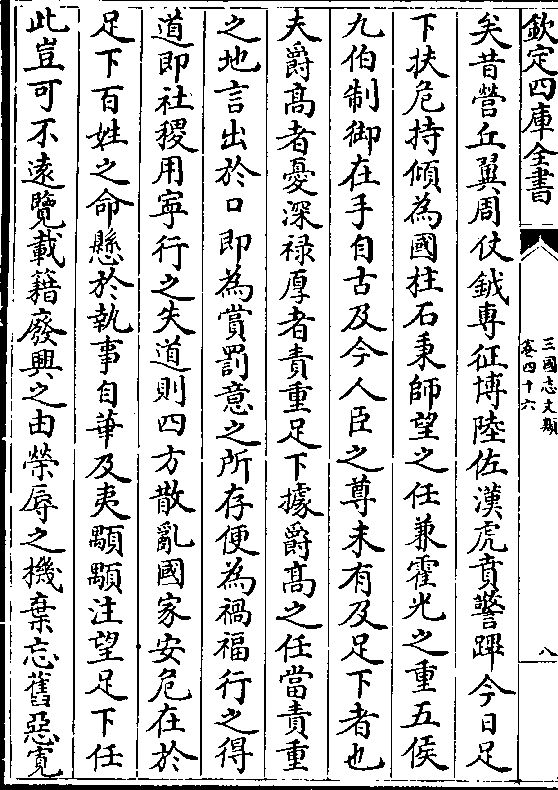 欽定四庫全書
三國志文類
卷四十六
八
矣昔營丘翼周仗鉞專征博陸佐漢虎賁警蹕今日足
下扶危持傾為國柱石秉師望之任兼霍光之重五侯
九伯制御在手自古及今人臣之尊未有及足下者也
夫爵髙者憂深禄厚者責重足下據爵髙之任當責重
之地言出於口即為賞罰意之所存便為禍福行之得
道即社稷用寧行之失道則四方散亂國家安危在於
足下百姓之命懸於執事自華及夷顒顒注望足下任
此豈可不遠覽載籍廢興之由榮辱之機棄忘舊惡寛